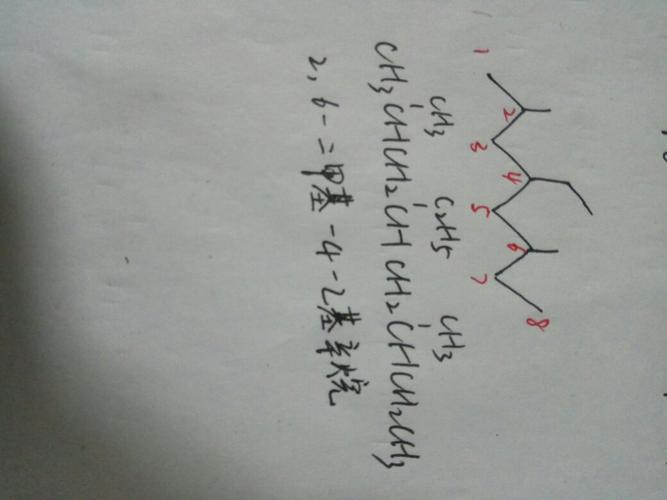 1 2 3 4 5 6 7 8
CH3 C2H5 CH3
CH3CHCH2CHCH2CHCH2CH3
2,6-二甲基-4-乙基辛烷